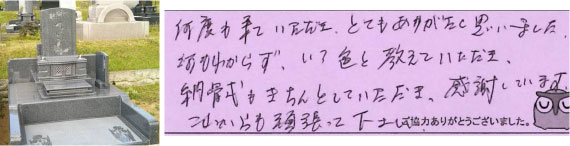 何度も来ていただき、とてもありがたく思いました。
何もわからず、いろ色と教えていただき、
納骨式もきちんとしていただき、感謝しています。
これからも頑張って下さい
ご協力ありがとうございました。